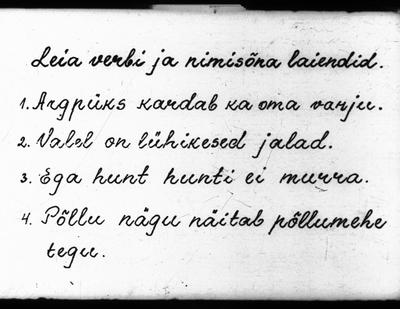 Leia verbi ja nimisõna laiendid.
1. Argpüks kardab ka oma varju.
2. Valel on lühikesed jalad.
3. Ega hunt hunti ei murra.
4. Põllu nägu näitab põllumehe
tegu.